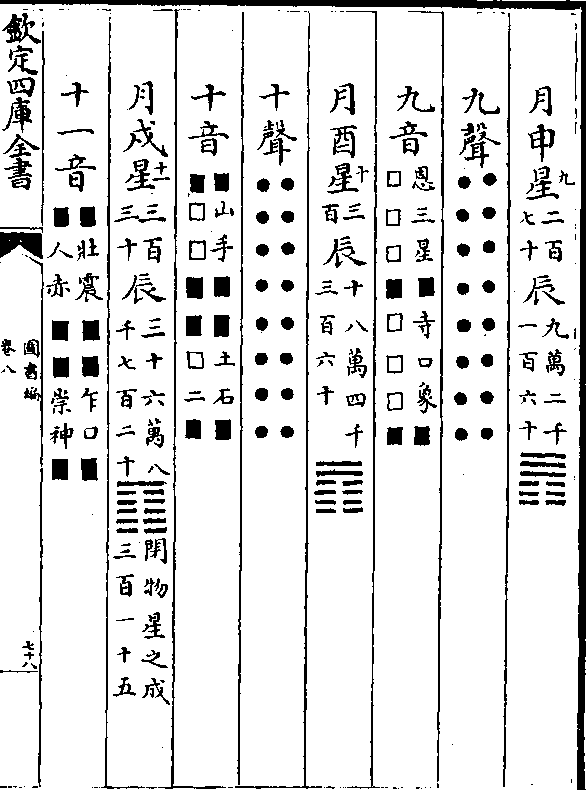 月申星九二百七十辰九萬二千一百六十䷋
九聲●●●●●●●●
●●●●●●●●
九音思三星■寺口象■
□□□■□□□■
月酉星十三百辰十八萬四千三百六十䷓
十聲●●●●●●●●
●●●●●●●●
十音■山手■■土石■
■□□■■□二■
月戍星十一三百三十辰三十六萬八千七百二十䷖閉物星之成三百一十五
十一音■壯震■■乍口■
■人赤■■崇神■
欽定四庫全書
圖書編
卷八
七十八